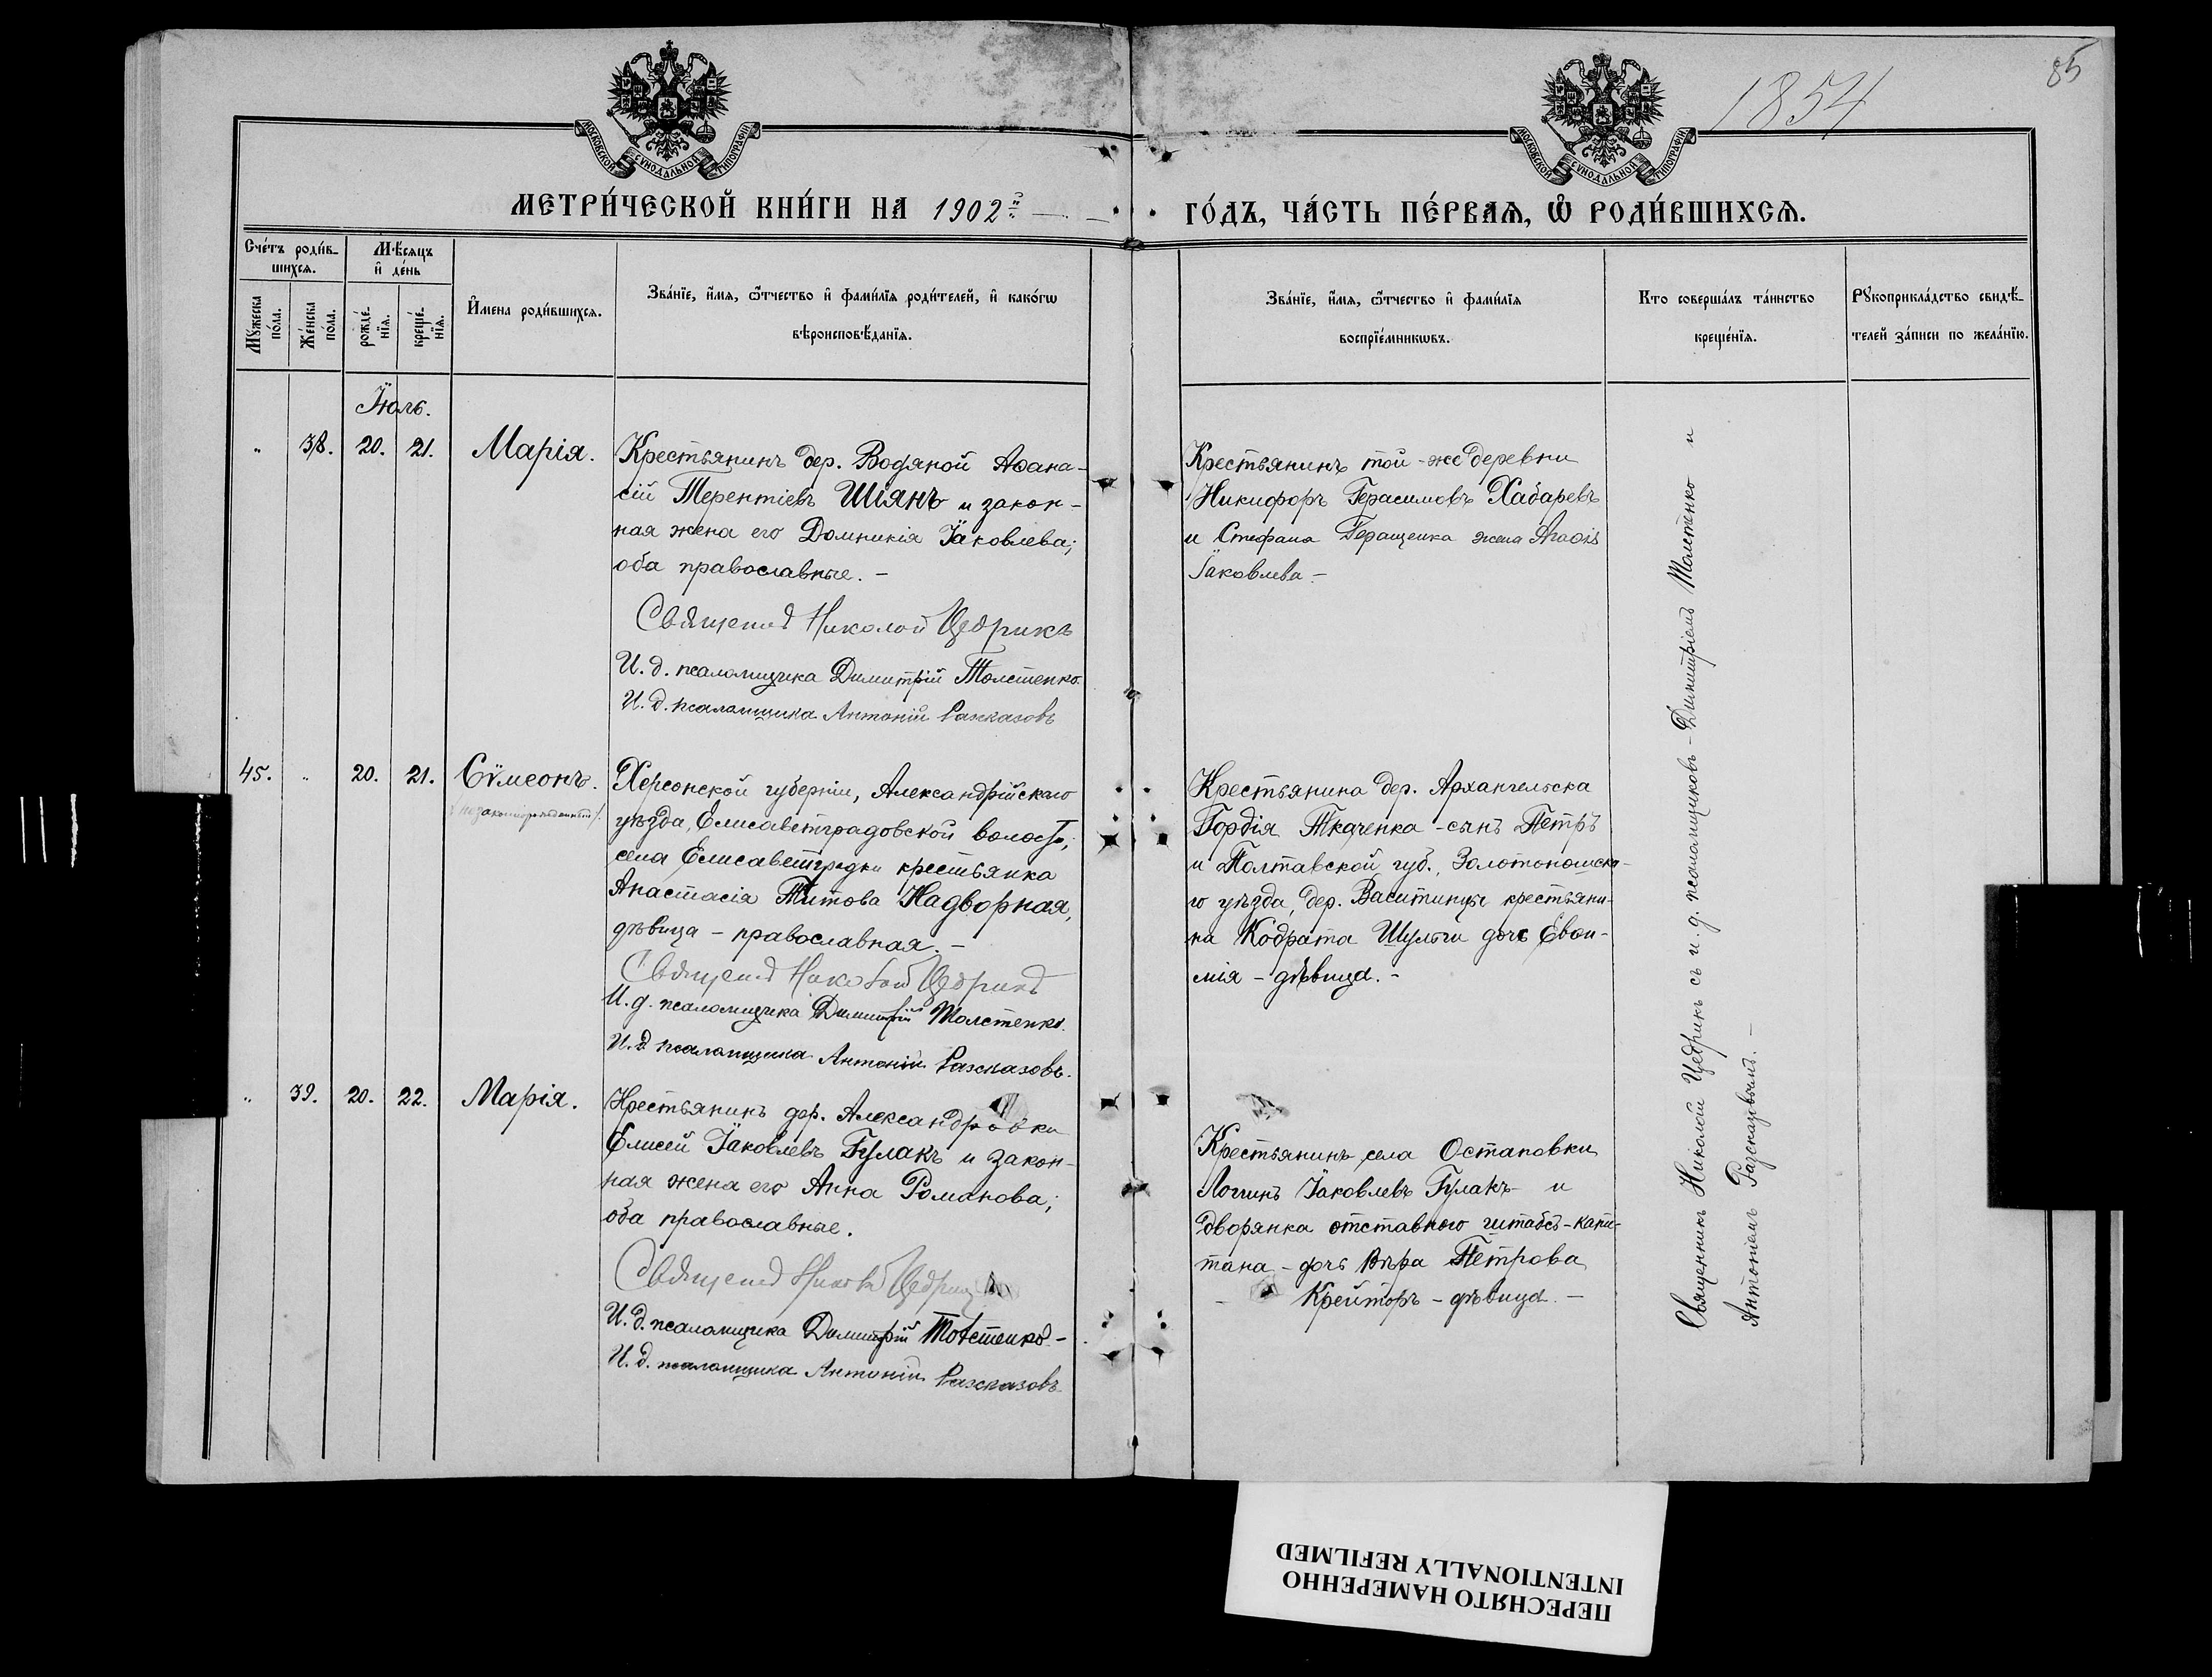 85
1854
МОСКОВСКОЙ СѴНОДАЛЬНОЙ ТИПОГРАФІИ
МОСКОВСКОЙ СѴНОДАЛЬНОЙ ТИПОГРАФІИ
МЕТРИ́ЧЕСКОЙ КНИ́ГИ НА 1902й ГО́ДЪ, ЧА́СТЬ ПЕ́РВАѦ, Ѡ҆ РОДИ́ВШИХСѦ.
Сче́тъ роди́в-
шихсѧ.
Мѣ́сѧцъ
и҆ де́нь
Мꙋ́жеска
по́ла.
Же́нска
по́ла.
рожде́-
нїѧ.
креще́-
нїѧ.
И҆мена роди́вшихсѧ.
Зва́нїе, и҆́мѧ, ѻ҆́тчество и҆ фами́лїѧ роди́телей, и҆ како́гѡ
вѣроисповѣ́данїѧ.
Зва́нїе, и҆́мѧ, ѻ҆́тчество и҆ фами́лїѧ
воспрїе́мникѡвъ.
Кто соверша́лъ та́инство
креще́нїѧ.
Рꙋкоприкла́дство свидѣ́-
телей за́писи по жела́нїю.
Іюль.
" 38. 20. 21. Марія.
Крестьянинъ дер. Водяной Аѳана-
сій Терентіевъ Шіянъ и закон-
ная жена его Домникія Іаковлева;
оба православные. -
Священ Николай Цедрикъ
И. д. псаломщика Димитрій Толстенко
И. д. псаломщика Антоній Разсказовъ
Крестьянинъ той-же деревни
Никифоръ Герасимовъ Хабаревъ
и Стефана Геращенка жена
Іаковлева -
45. " 20. 21. Сѵмеонъ.
незаконнорожденный
Херсонской губерніи, Александрійскаго
уѣзда, Елисаветградовской волости,
села Елисаветградки крестьянка
Анастасія Титова Надворная,
дѣвица - православная. -
Священ Николай Цедрикъ
И. д. псаломщика Димитрій Толстенко.
И. д. псаломщика Антоній Разсказовъ.
Крестьянина дер. Архангельска
Гордія Ткаченка - сынъ Петръ
и Полтавской губ., Золотоношска-
го уѣзда, дер. Васютинцы крестьяни-
на Кодрата Шульги дочь Евѳи-
мія - дѣвица. -
" 39. 20. 22. Марія.
Крестьянинъ дер. Александровки
Елисей Іаковлевъ Гулакъ и закон-
ная жена его Анна Романова;
оба православные.
Священ Николай Цедрикъ
И. д. псаломщика Димитрій Толстенко -
И. д. псаломщика Антоній Разсказовъ
Крестьянинъ села Остаповки
Логинъ Іаковлевъ Гулакъ и
дворянка отставного штабсъ-капи-
тана - дочь Вѣра Петрова
Крейторъ - дѣвица. -
Священникъ Николай Цедрикъ съ и. д. псаломщиковъ - Димитріемъ Толстенко и
Антоніемъ Разсказовымъ. -
ПЕРЕСНЯТО НАМЕРЕННО
INTENTIONALLY REFILMED